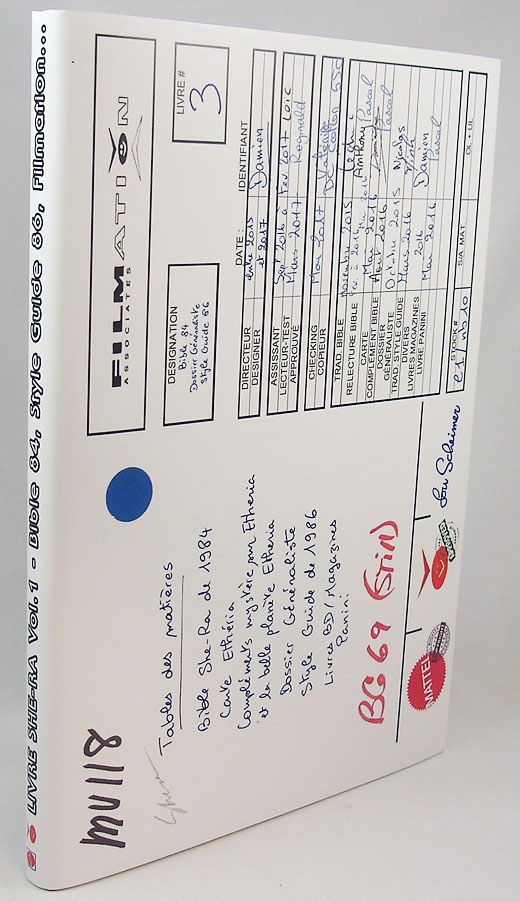 LIVRE SHE-RA Vol.1 - Bible 84, Style Guide 86, Filmation...
FILMATION
ASSOCIATES
LIVRE #
3
DESIGNATION
Bible 84
Dossier Généraliste
Style Guide 86
DATE :
IDENTIFIANT
DIRECTEUR
DESIGNER
entre 2015
et 2017
Damien
ASSISSANT
LECTEUR-TEST
APPROUVÉ
Sept 2016 à Fev 2017
Loic
Mars 2017
Reginald
CHECKING
COPIEUR
Mai 2017
TRAD. BIBLE
novembre 2015
RELECTURE BIBLE
CARTE
Mai 2016
Anthony
Pascal
COMPLÉMENT BIBLE
DOSSIER
GÉNÉRALISTE
Pascal
TRAD. STYLE GUIDE
Octobre 2015
DIVERS
Mars 2016
LIVRES MAGAZINES
2016
Damien
LIVRE PANINI
Mai 2016
Pascal
STOCK #
S/A. MAT.
OL • UL
MU118
Tables des matières
Bible She-Ra de 1984
Carte Ethéria
Compléments mystère sur Etheria
et la belle planète Etheria
Dossier Généraliste
Style Guide de 1986
Livres BD/Magazines
Panini
BG 69 (STIN)
MATTEL
Lou Scheimer